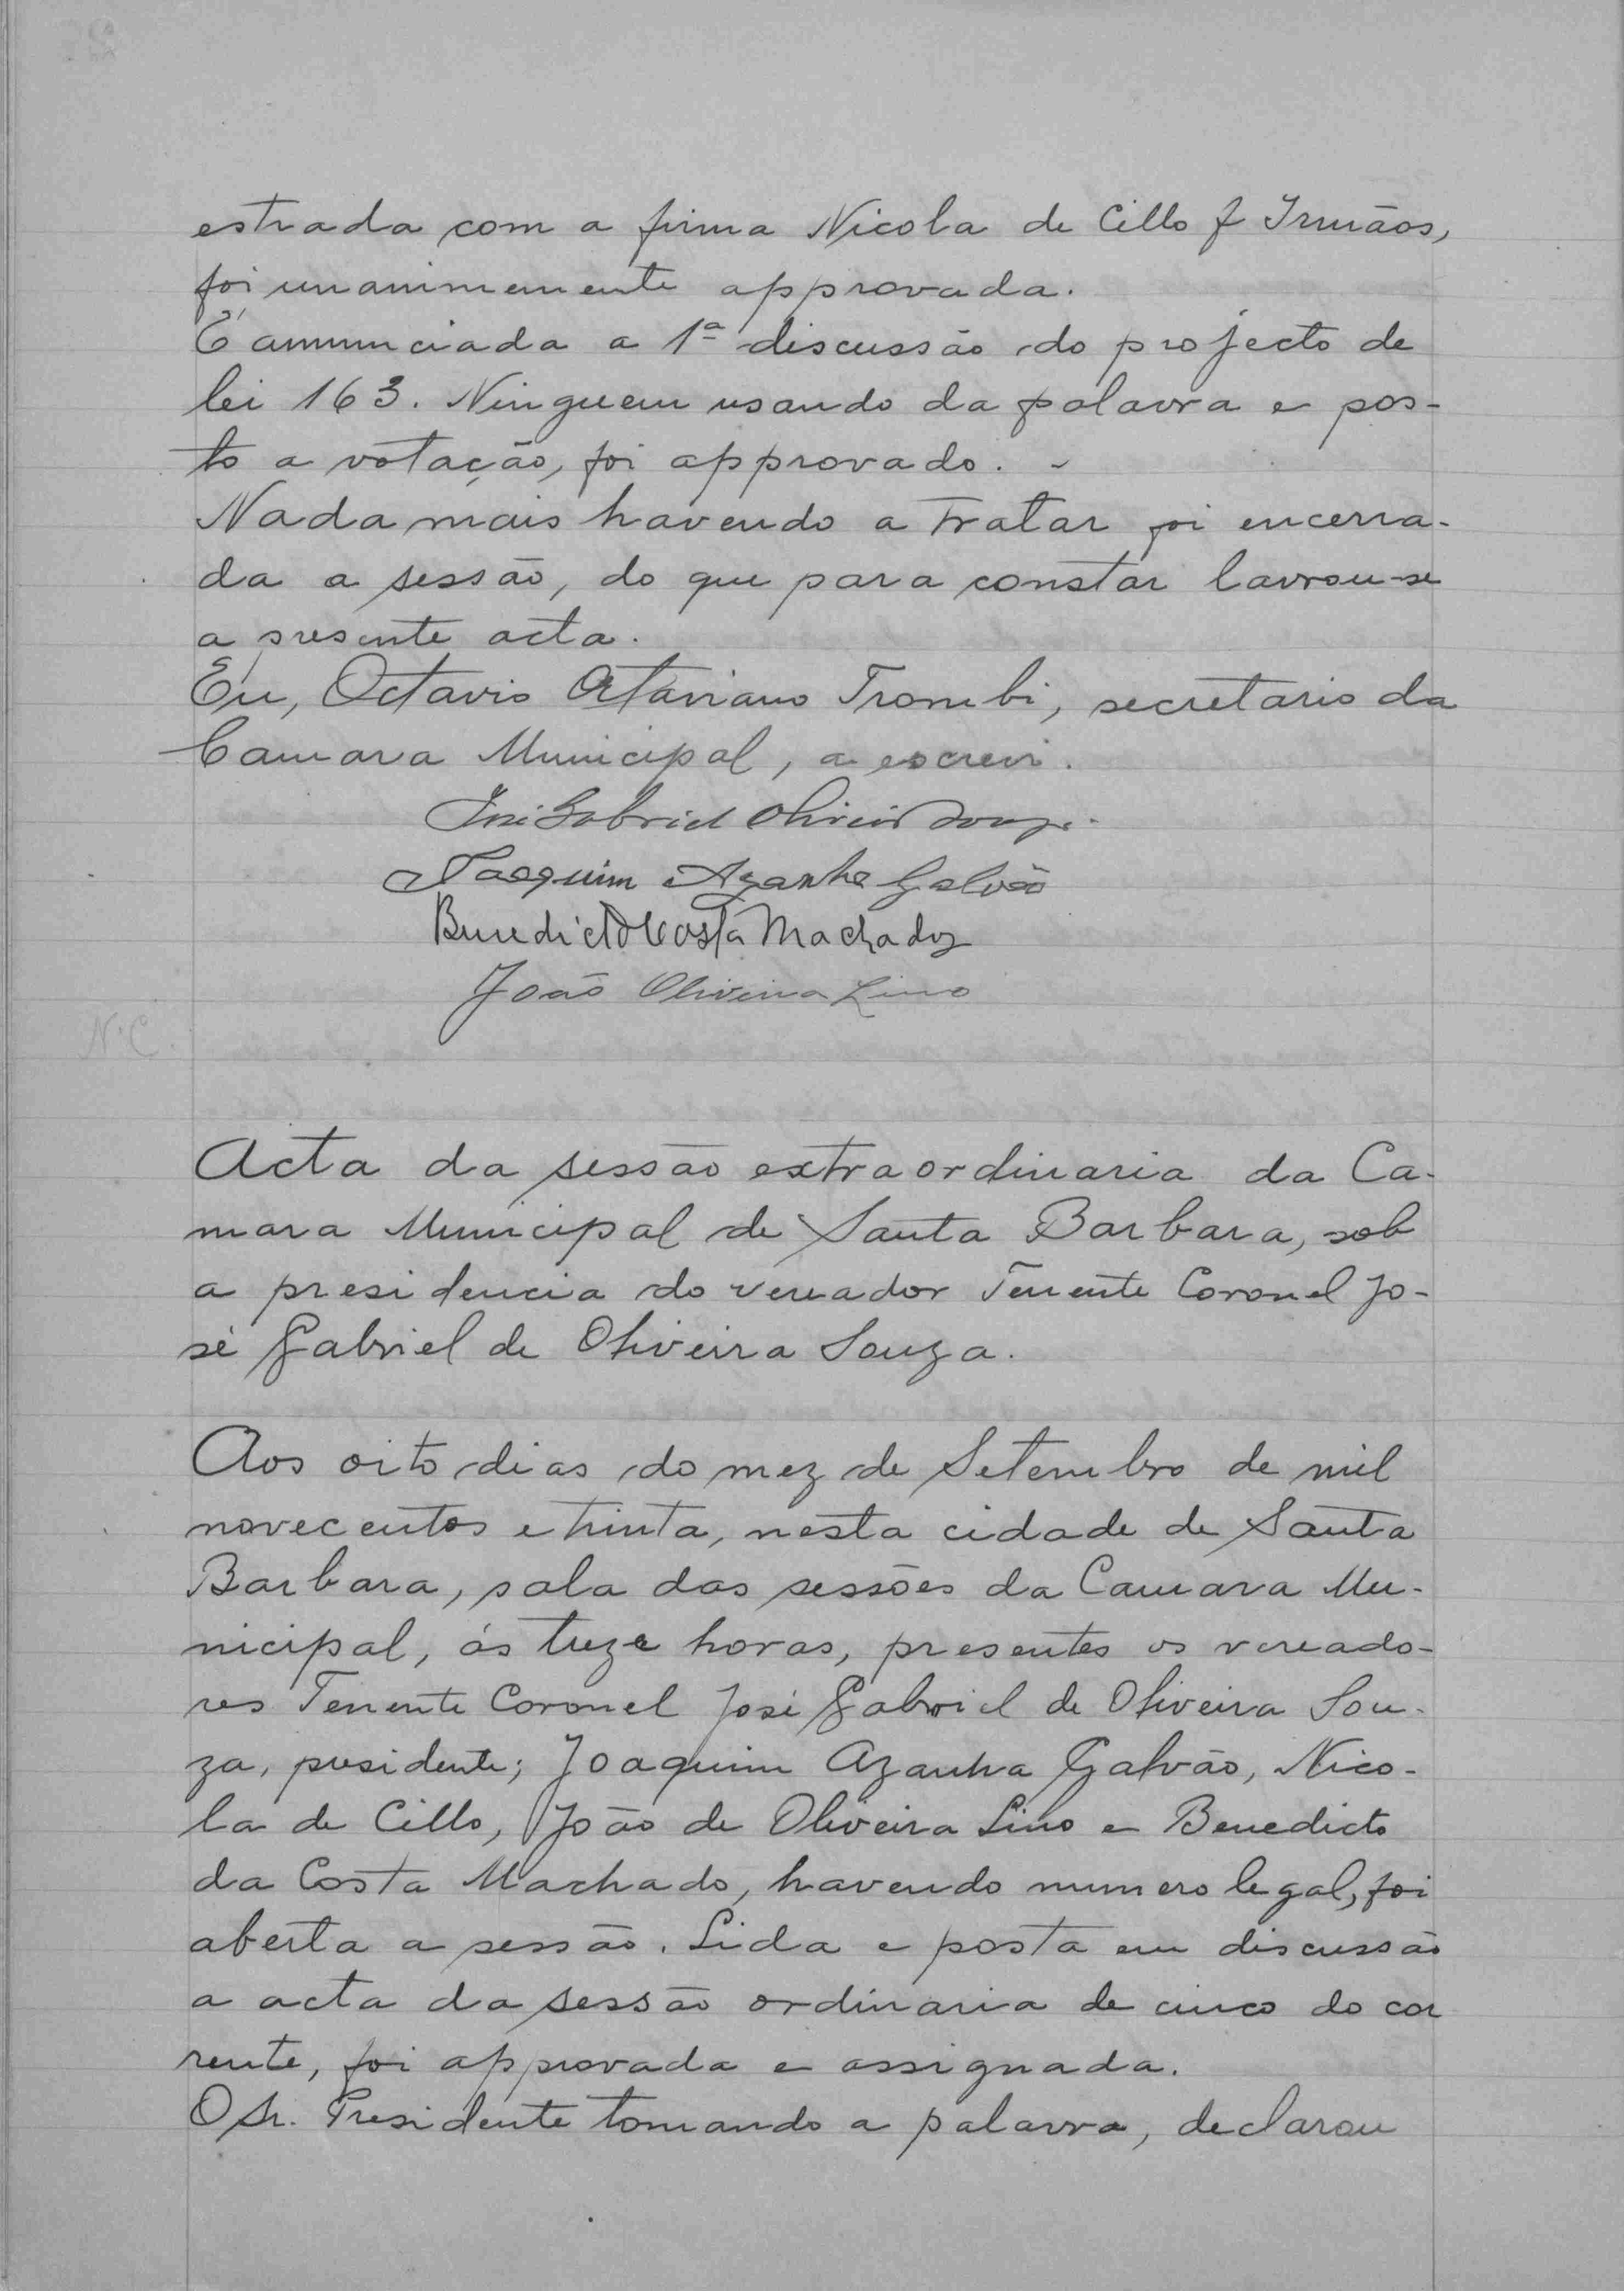 estrada com a firma Nicola de Cillo & Irmãos,
foi unanimemente approvada.
É annunciada a 1ª discussão do projecto de
lei 163. Ninguem usando da palavra e pos-
to a votação, foi approvado. -
Nada mais havendo a tratar foi encerra-
da a sessão, do que para constar lavrou-se
a presente acta.
Eu, Octavio Octaviano Trombi, secretario da
Camara Municipal, a escrevi.
José Gabriel Oliveira Souza.
Joaquim Azanha Galvão
Benedicto Costa Machado
João Oliveira Lino
N.C.
Acta da sessão extraordinaria da Ca-
mara Municipal de Santa Barbara, sob
a presidencia do vereador Tenente Coronel Jo-
sé Gabriel de Oliveira Souza.
Aos oito dias do mez de Setembro de mil
novecentos e trinta, nesta cidade de Santa
Barbara, sala das sessões da Camara Mu-
nicipal, ás treze horas, presentes os vereado-
res Tenente Coronel José Gabriel de Oliveira Sou-
za, presidente; Joaquim Azanha Galvão, Nico-
la de Cillo, João de Oliveira Lino e Benedicto
da Costa Machado, havendo numero legal, foi
aberta a sessão. Lida e posta em discussão
a acta da sessão ordinaria de cinco do cor
rente, foi approvada e assignada.
O Sr. Presidente tomando a palavra, declarou